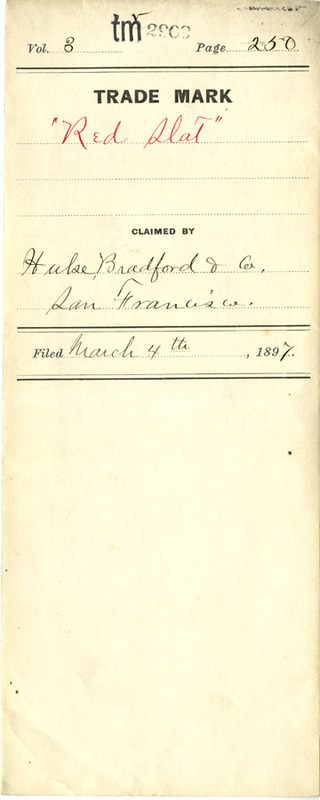 tm 2900
Vol. 3 Page 250
TRADE MARK
"Red Slat"
CLAIMED BY
Hulse, Bradford & Co,
San Francisco.
Filed March 4th, 1897.